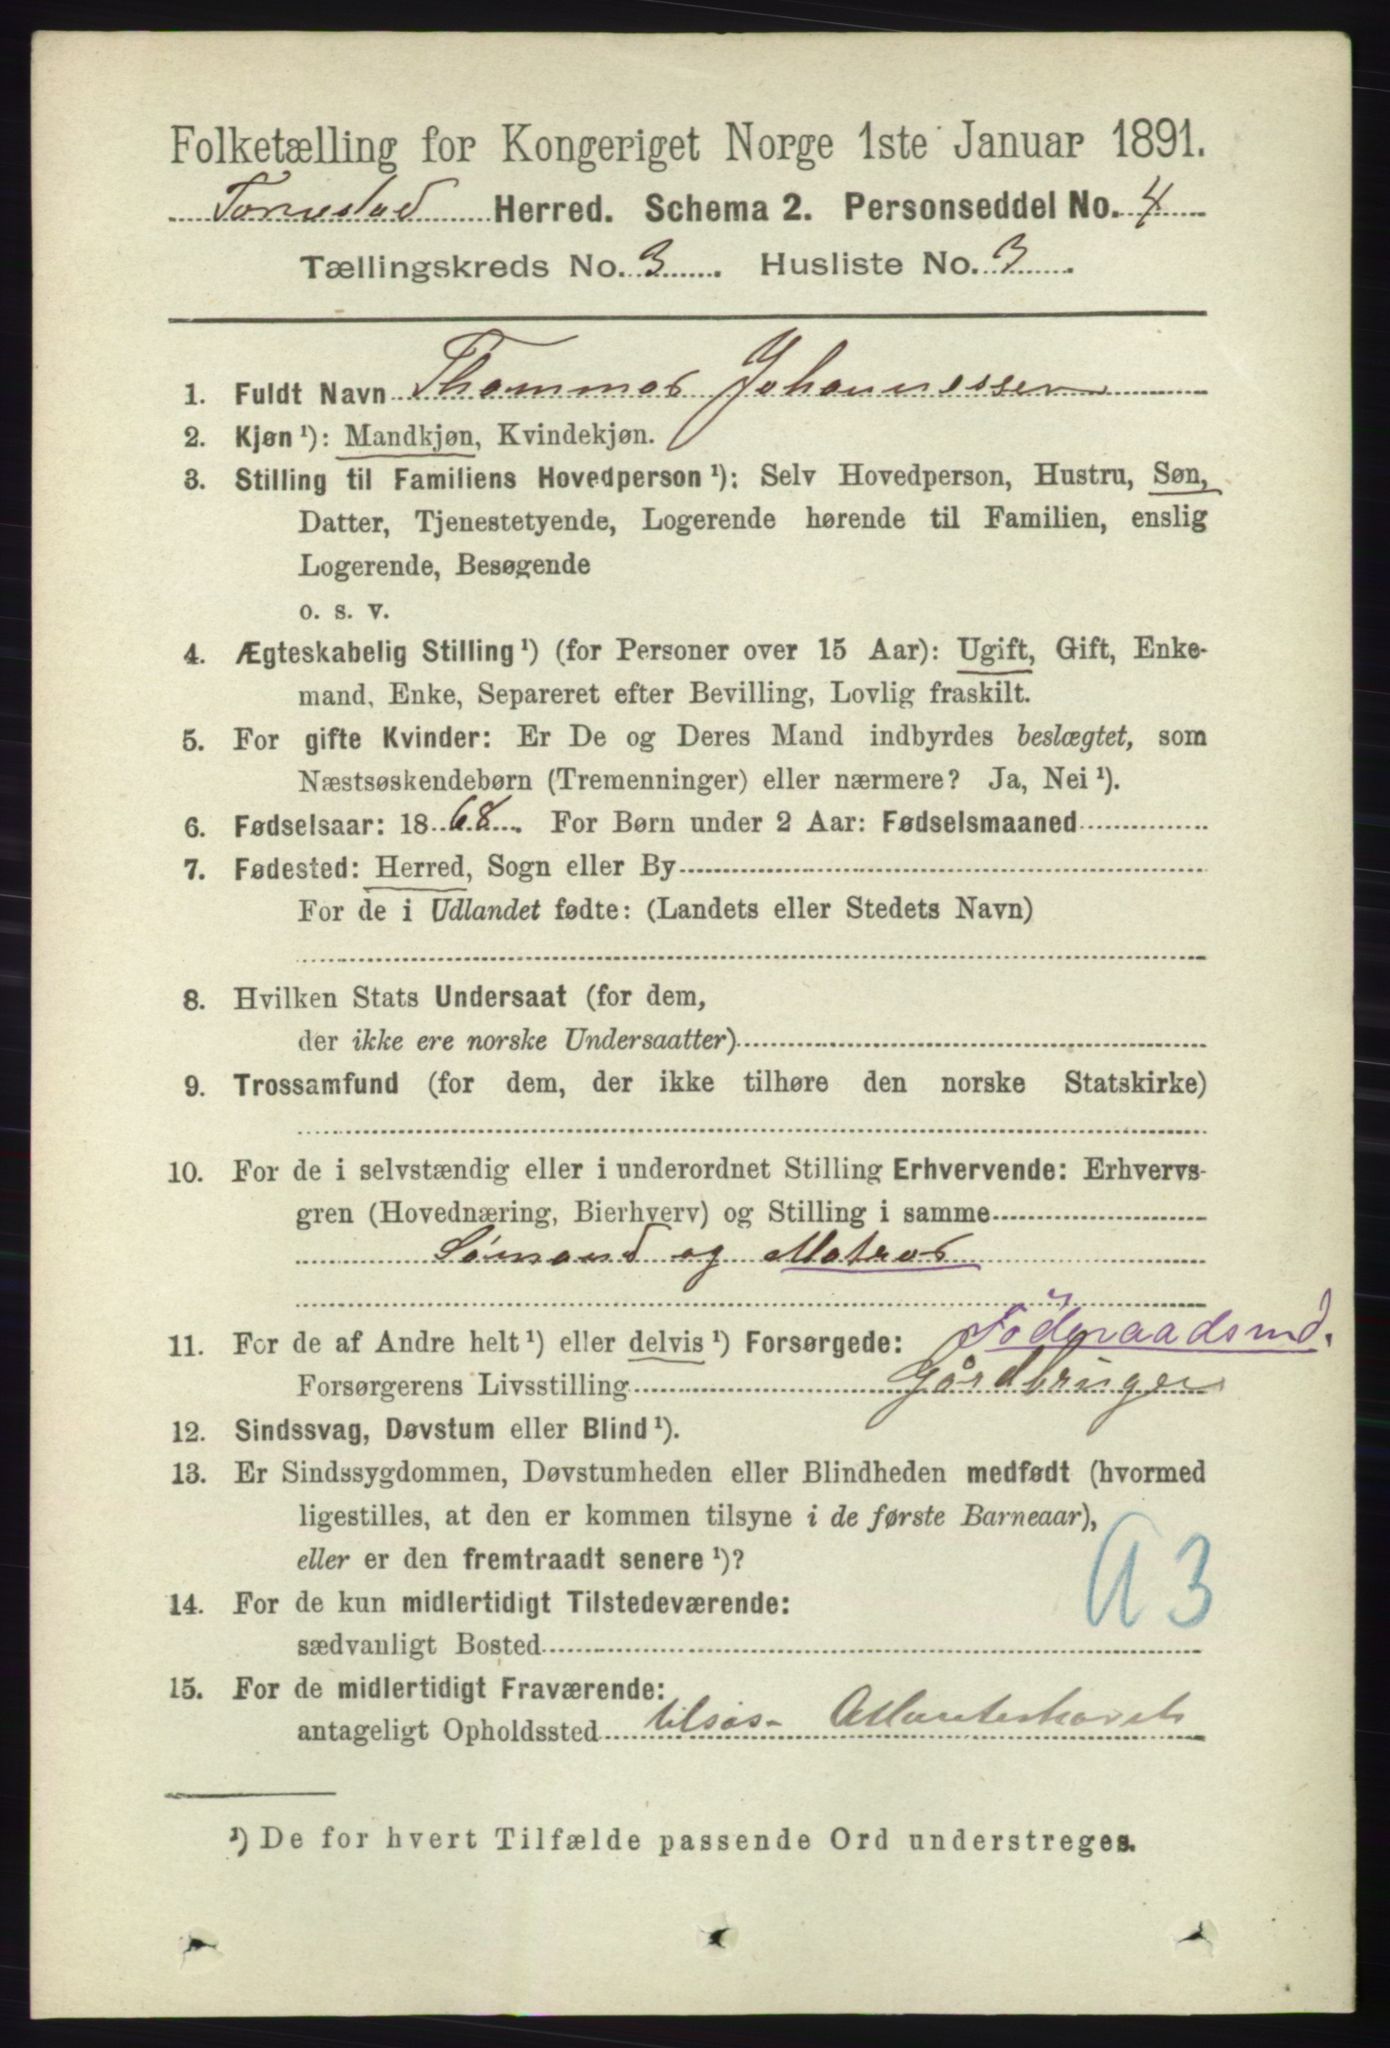 Folketælling for Kongeriget Norge 1ste Januar 1891.
Torvestad Herred. Schema 2. Personseddel No. 4
Tællingskreds No. 3. Husliste No. 3.
1. Fuldt Navn Thommas Johannessen
2. Kjøn¹): Mandkjøn, Kvindekjøn.
3. Stilling til Familiens Hovedperson¹): Selv Hovedperson, Hustru, Søn,
Datter, Tjenestetyende, Logerende hørende til Familien, enslig
Logerende, Besøgende
o. s. v.
4. Ægteskabelig Stilling¹) (for Personer over 15 Aar): Ugift, Gift, Enke-
mand, Enke, Separeret efter Bevilling, Lovlig fraskilt.
5. For gifte Kvinder: Er De og Deres Mand indbyrdes beslægtet, som
Næstsøskendebørn (Tremenninger) eller nærmere? Ja, Nei¹).
6. Fødselsaar: 1868. For Børn under 2 Aar: Fødselsmaaned
7. Fødested: Herred, Sogn eller By
For de i Udlandet fødte: (Landets eller Stedets Navn)
8. Hvilken Stats Undersaat (for dem,
der ikke ere norske Undersaatter)
9. Trossamfund (for dem, der ikke tilhøre den norske Statskirke)
10. For de i selvstændig eller i underordnet Stilling Erhvervende: Erhvervs-
gren (Hovednæring, Bierhverv) og Stilling i samme
Sömand og Matros
11. For de af Andre helt¹) eller delvis¹) Forsørgede: Föderaadsmd.
Forsørgerens Livsstilling Gårdbruger
12. Sindssvag, Døvstum eller Blind¹).
13. Er Sindssygdommen, Døvstumheden eller Blindheden medfødt (hvormed
ligestilles, at den er kommen tilsyne i de første Barneaar),
eller er den fremtraadt senere¹)?
a 3
14. For de kun midlertidigt Tilstedeværende:
sædvanligt Bosted
15. For de midlertidigt Fraværende:
antageligt Opholdssted tilsøs - Atlanterhavet
¹) De for hvert Tilfælde passende Ord understreges.